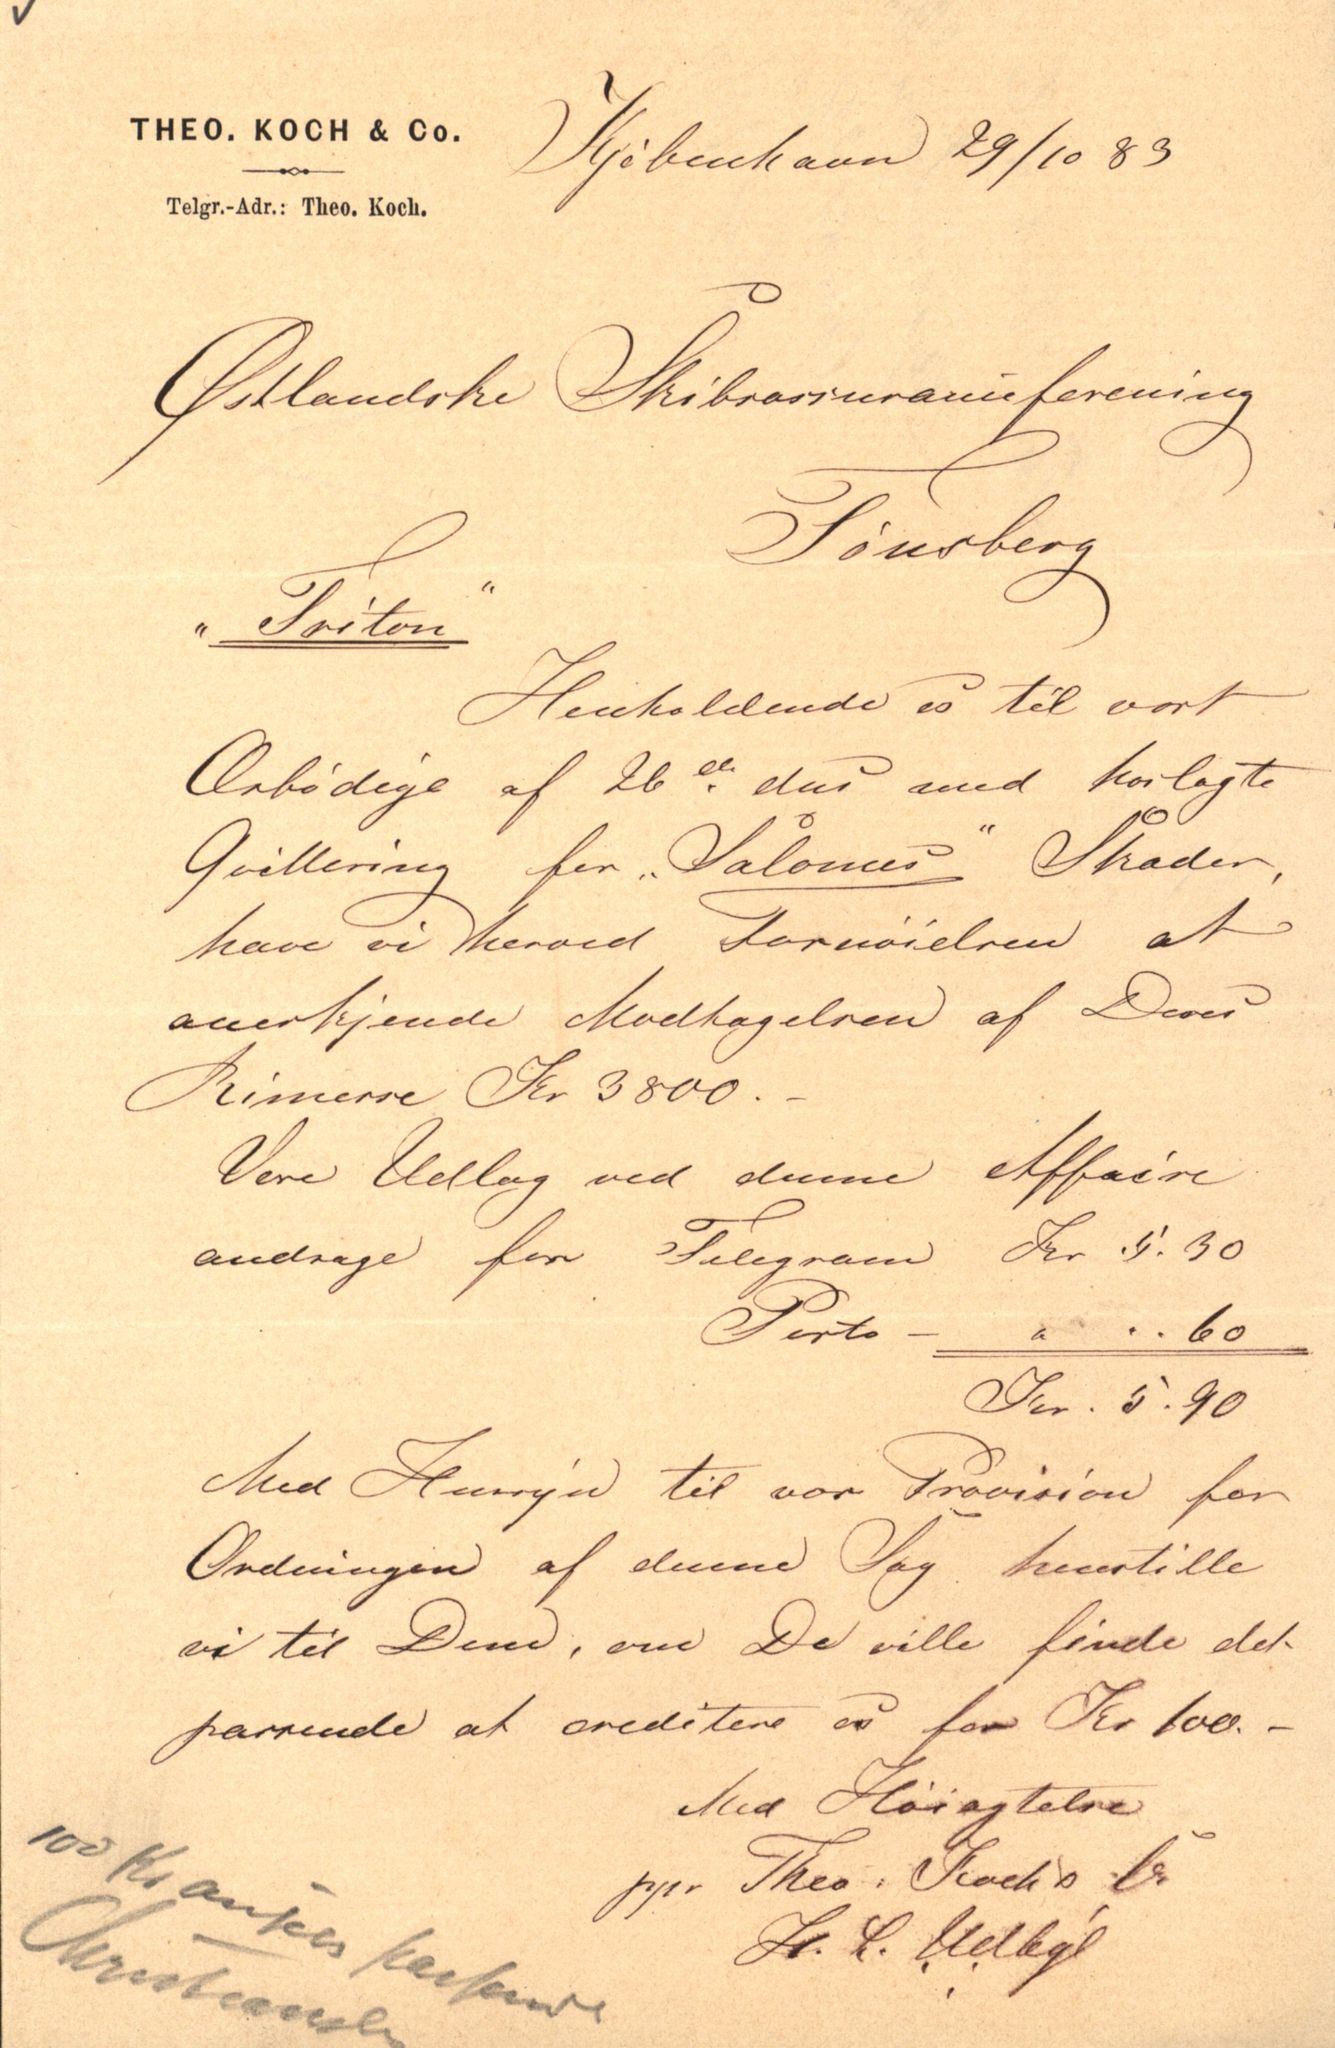 THEO. KOCH & Co.
Telgr.-Adr.: Theo. Koch.
Kjöbenhavn 29/10 83
Østlandske Skibsassuranceforening
Tönsberg
"Triton"
Henholdende os til vort
Ærbödige af 26de ds med hoslagte
Qvittering for "Salomes" Skader,
have vi herved Fornöielsen at
anerkjende Modtagelsen af Deres
Rimesse Kr 3800.-
Vore Udlæg ved denne Affaire
andrage for Telegram Kr 5.30
Porto - " ..60
Kr. 5.90
Med Hensyn til vor Provision for
Ordningen af denne Sag henstille
vi til Dem, om De ville finde det
passende at creditere os for Kr 100.-
Med Höiagtelse
ppr Theo. Koch & Co
100 Kr ansees passende